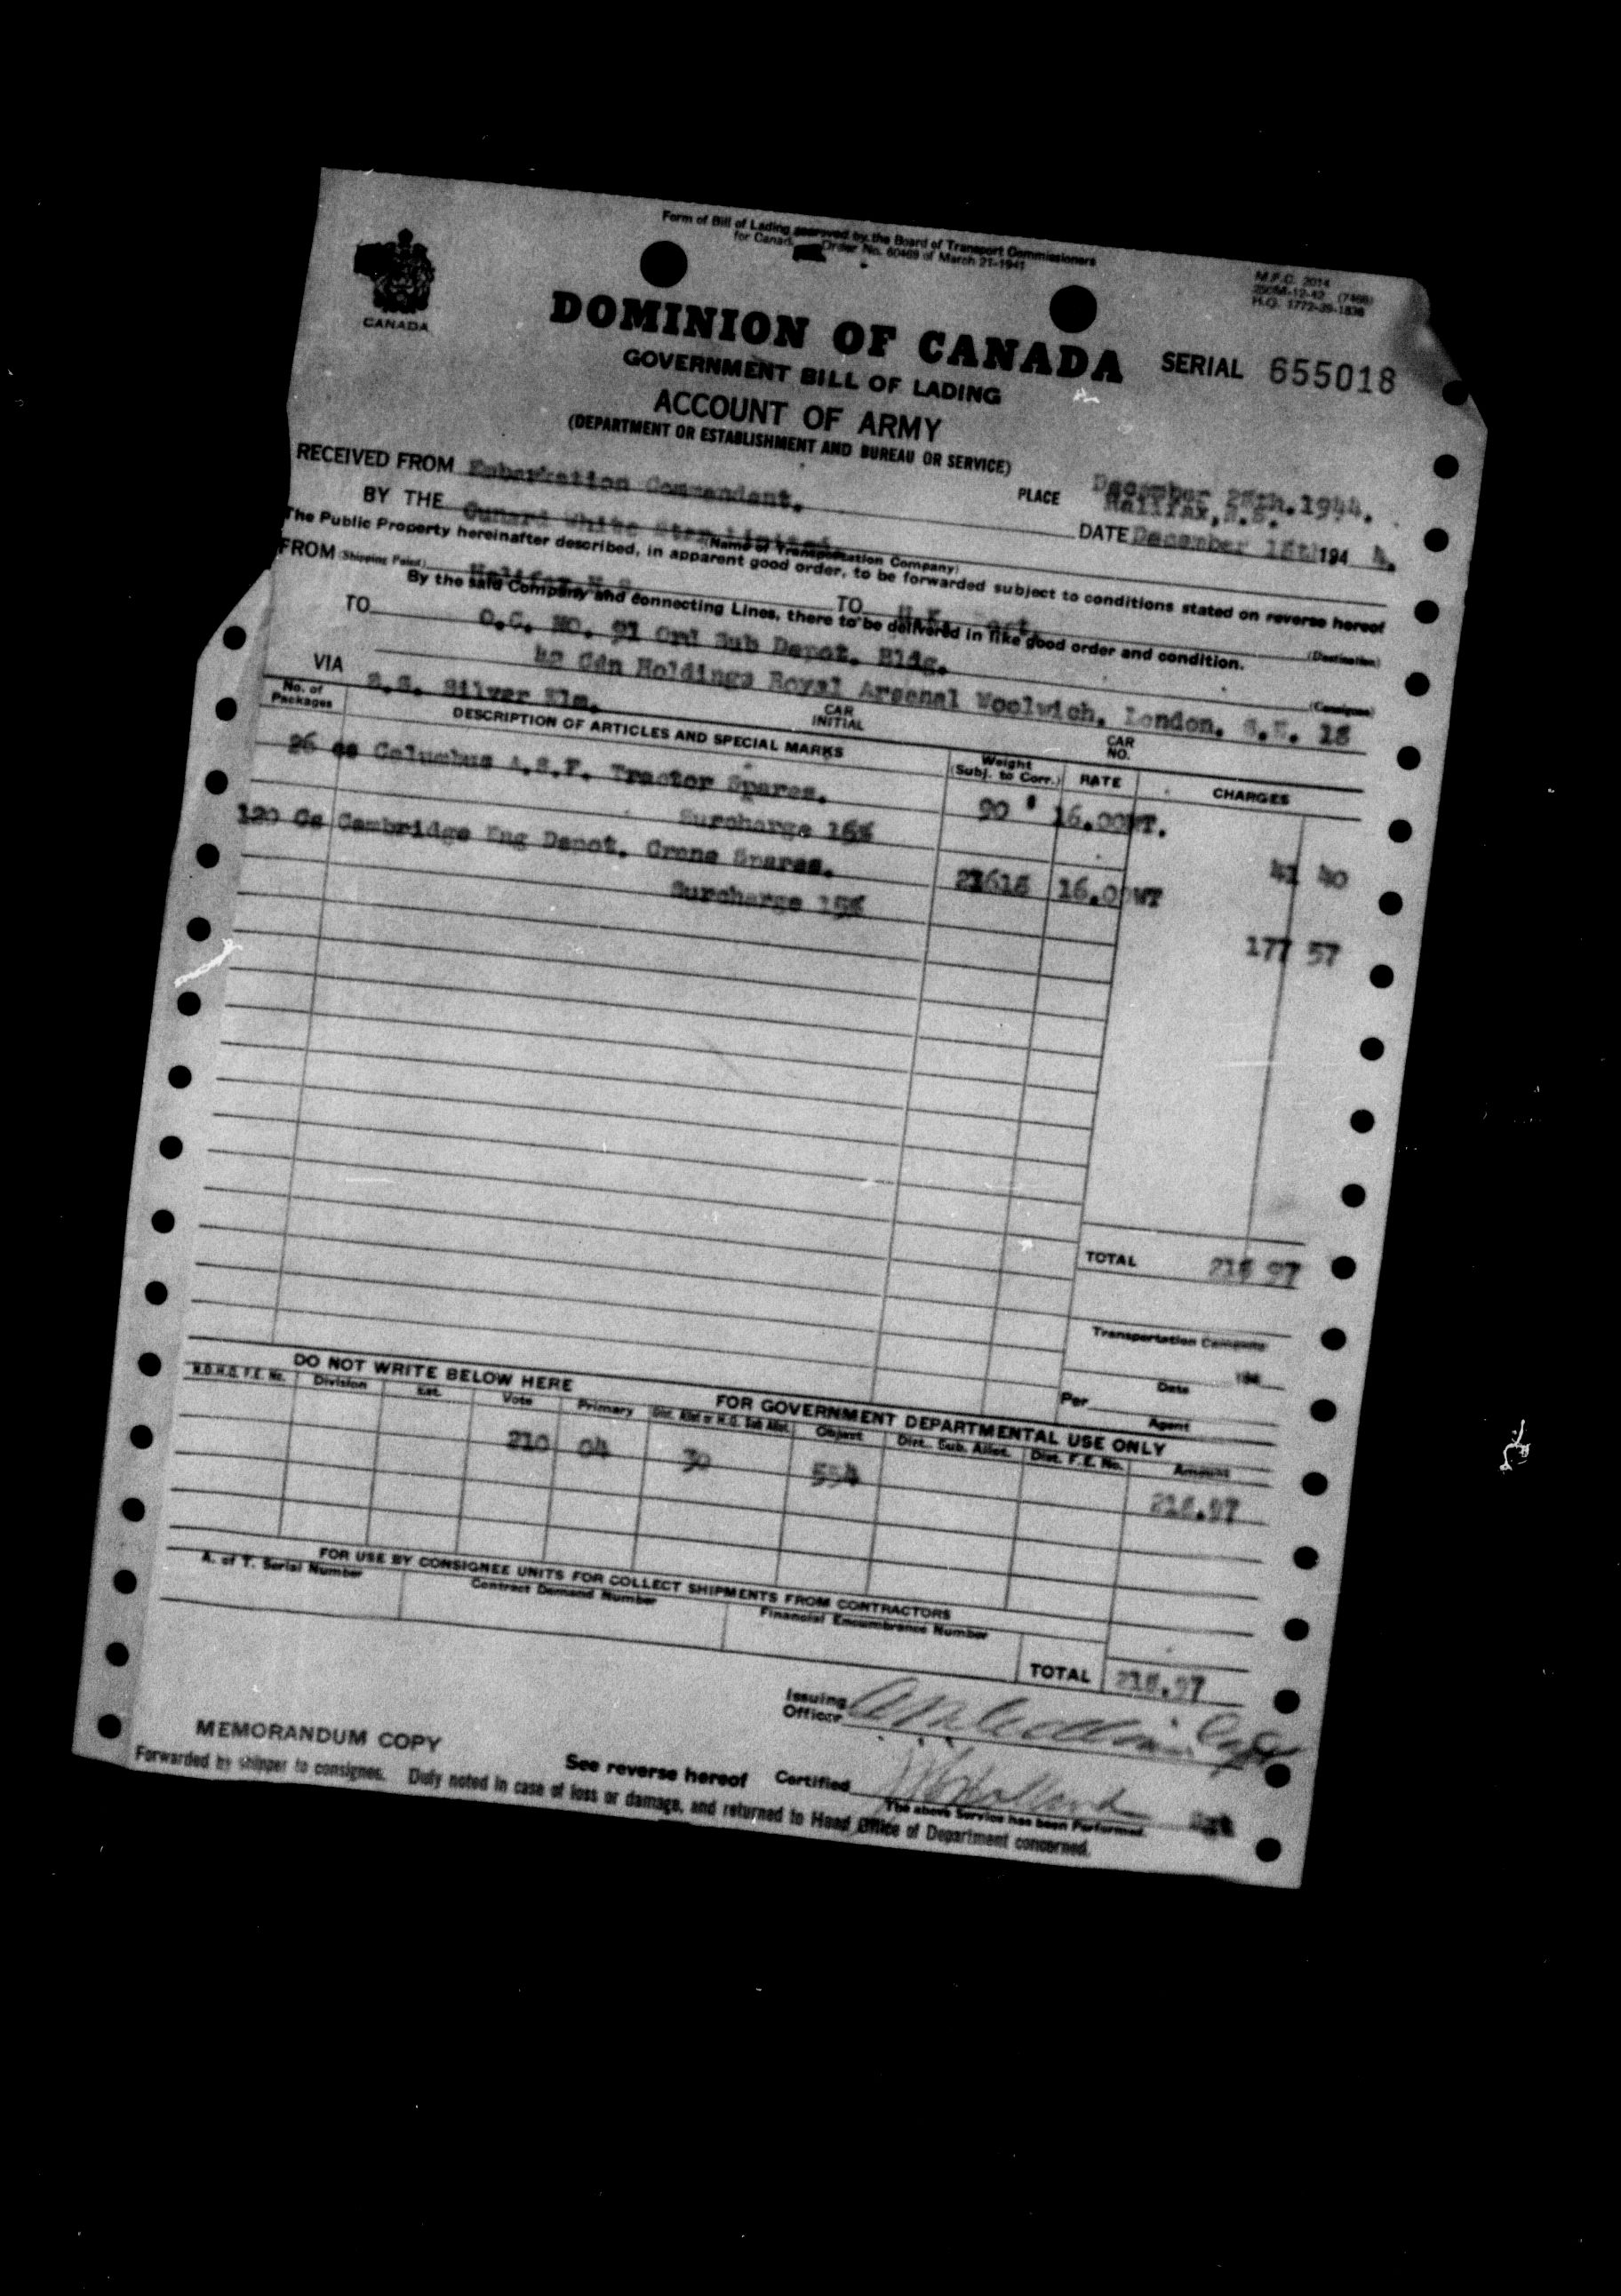 Form of Bill of Lading approved by the Board of Transport Commissioners
for Canada Order No. 60469 of March 21-1941
M.F.C. 2014
250M-12-42 (7466)
H.Q. 1772-39-1836
CANADA
DOMINION OF CANADA
SERIAL 655018
GOVERNMENT BILL OF LADING
ACCOUNT OF ARMY
(DEPARTMENT OR ESTABLISHMENT AND BUREAU OR SERVICE)
RECEIVED FROM Embarkation Commandant.
PLACE December 28th.1944.
Halifax, N.S.
BY THE Cunard White Star Limited
DATE December 18th 194 4.
(Name of Transportation Company)
The Public Property hereinafter described, in apparent good order, to be forwarded subject to conditions stated on reverse hereof
FROM (Shipping Point) Halifax N.S. TO U.K. (Destination)
By the said Company and connecting Lines, there to be delivered in like good order and condition.
TO O.C. No. 21 Ord Sub Depot. Bldg.
42 Cdn Holdings Royal Arsenal Woolwich, London. S.E. 18 (Consignee)
VIA S.S. Silver Elm. CAR INITIAL CAR NO.
No. of Packages DESCRIPTION OF ARTICLES AND SPECIAL MARKS Weight (Subj. to Corr.) RATE CHARGES
26 cs Columbus A.S.F. Tractor Spares. 90 ' 16.00WT.
Surcharge 15% 41 40
120 Cs Cambridge Eng Depot. Crane Spares. 21615 16.00WT
Surcharge 15% 177 57
TOTAL 218 97
Transportation Company
Date 194
Per
Agent
DO NOT WRITE BELOW HERE FOR GOVERNMENT DEPARTMENTAL USE ONLY
N.D.H.Q. F.E. No. Division Est. Vote Primary Dist. Allot or H.Q. Sub Allot. Object Dist. Sub. Allot. Dist. F.E. No. Amount
210 04 30 554 218.97
FOR USE BY CONSIGNEE UNITS FOR COLLECT SHIPMENTS FROM CONTRACTORS
A. of T. Serial Number Contract Demand Number Financial Encumbrance Number
TOTAL 218.97
Issuing Officer
MEMORANDUM COPY
See reverse hereof Certified
The above Service has been Performed.
Forwarded by shipper to consignee. Duly noted in case of loss or damage, and returned to Head Office of Department concerned.